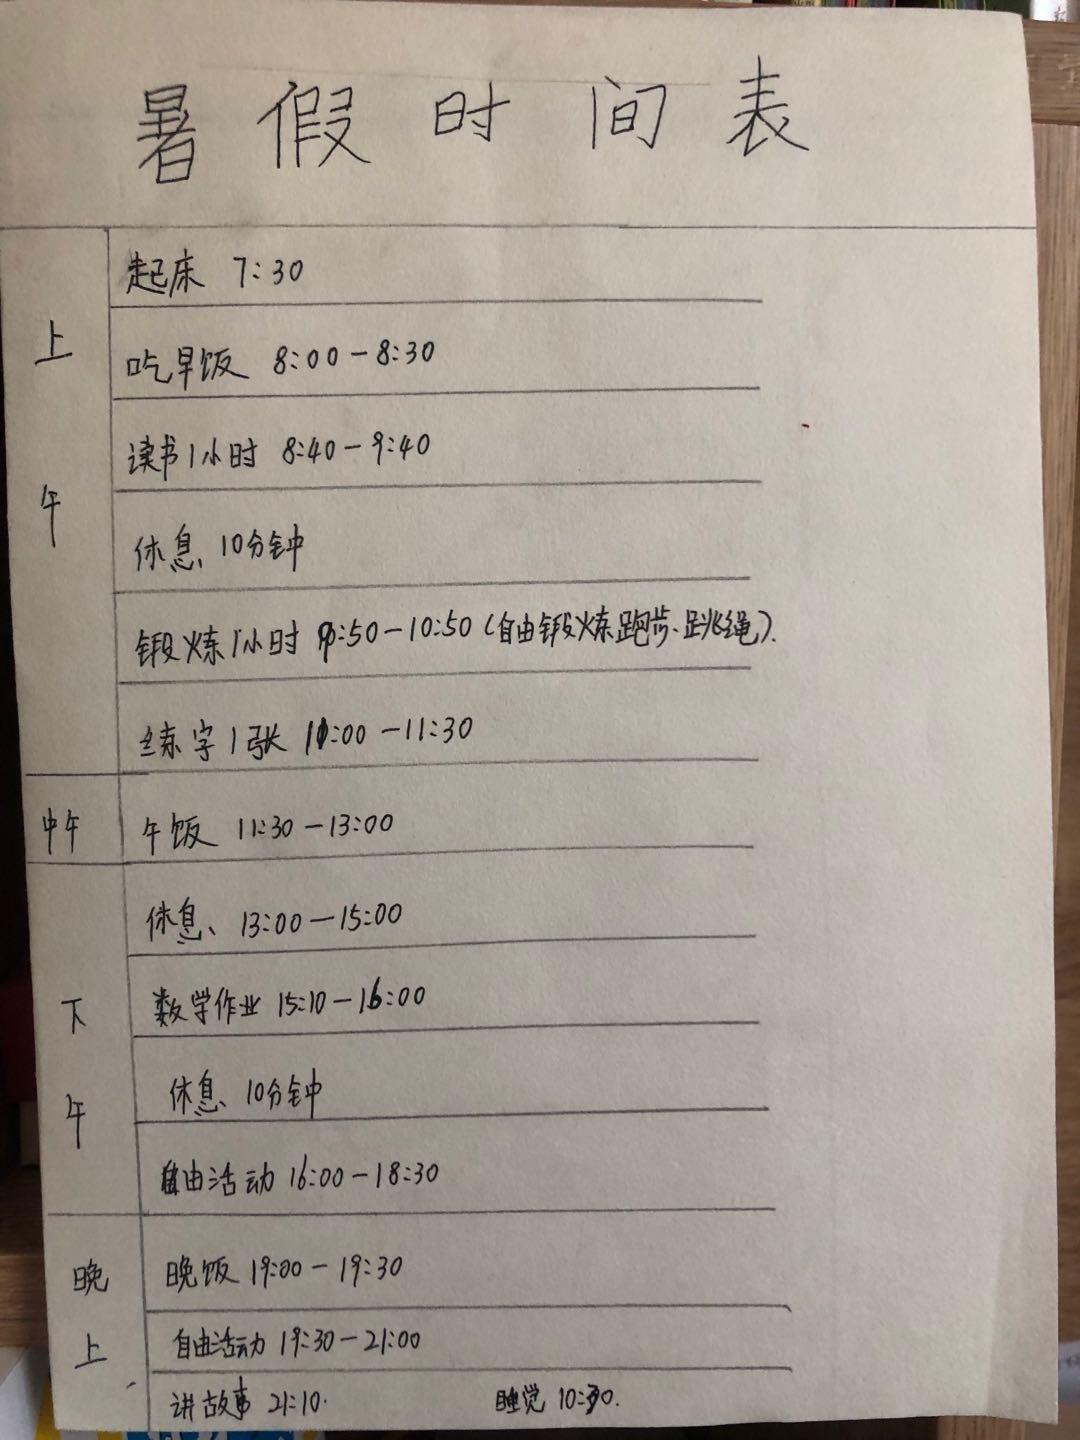 暑假时间表
上午
起床 7:30
吃早饭 8:00-8:30
读书1小时 8:40-9:40
休息、10分钟
锻炼1小时 9:50-10:50(自由锻炼跑步、跳绳).
练字1张 11:00-11:30
中午
午饭 11:30-13:00
下午
休息、13:00-15:00
数学作业 15:10-16:00
休息、10分钟
自由活动 16:00-18:30
晚上
晚饭 19:00-19:30
自由活动 19:30-21:00
讲故事 21:10. 睡觉 10:30.